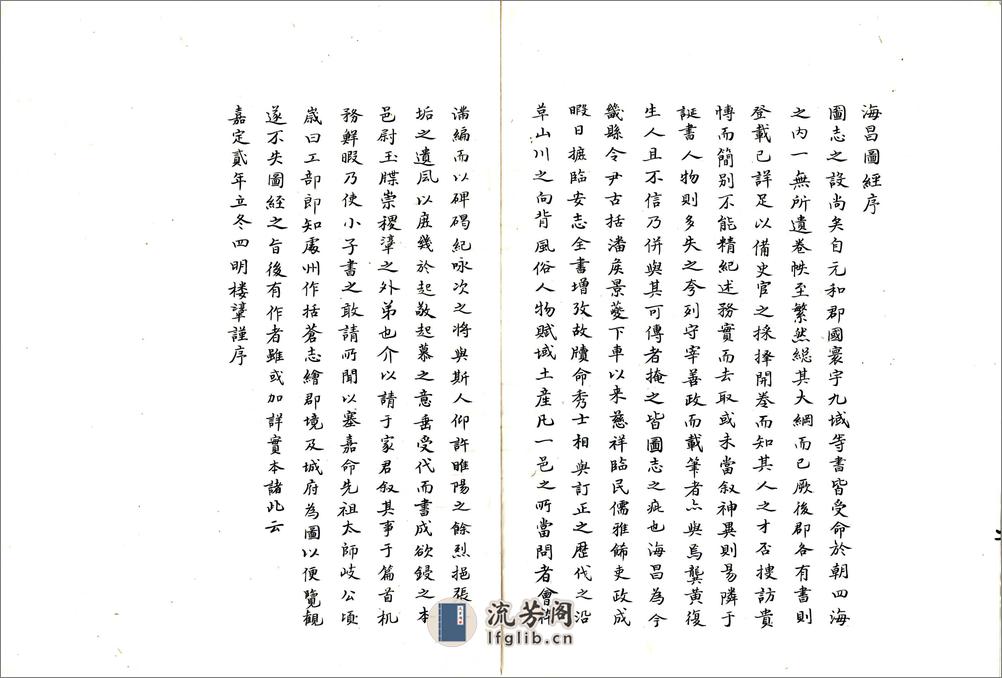 海昌圖經序
圖志之設尚矣自元和郡國寰宇九域等書皆受命於朝四海
之内一無所遺卷帙至繁然緫其大綱而已厥後郡各有書則
登載已詳足以備史官之採擇開卷而知其人之才否搜訪貴
博而簡別不能精紀述務實而去取或未當叙神異則易隣于
誕書人物則多失之夸列守宰善政而載筆者亦與焉龔黄復
生人且不信乃併與其可傳者掩之皆圖志之疵也海昌為今
畿縣令尹古括潘矦景夔下車以来慈祥臨民儒雅餙吏政成
暇日摭臨安志全書增攷故牘命秀士相與訂正之歷代之沿
草山川之向背風俗人物賦域土産凡一邑之所當問者會稡
滿編而以碑碣紀咏次之將與斯人仰許睢陽之餘烈挹張
垢之遺風以庶幾於起敬起慕之意垂受代而書成欲鋟之本
邑尉玉牒崇稷肈之外弟也介以請于家君叙其事于篇首机
務鮮暇乃使小子書之敢請所聞以塞嘉命先祖太師岐公頃
嵗曰工部郎知處州作括蒼志繪郡境及城府為圖以便覽觀
遂不失圖經之旨後有作者雖或加詳實本諸此云
嘉定貳年立冬四明楼肈謹序
流芳阁
lfglib.cn